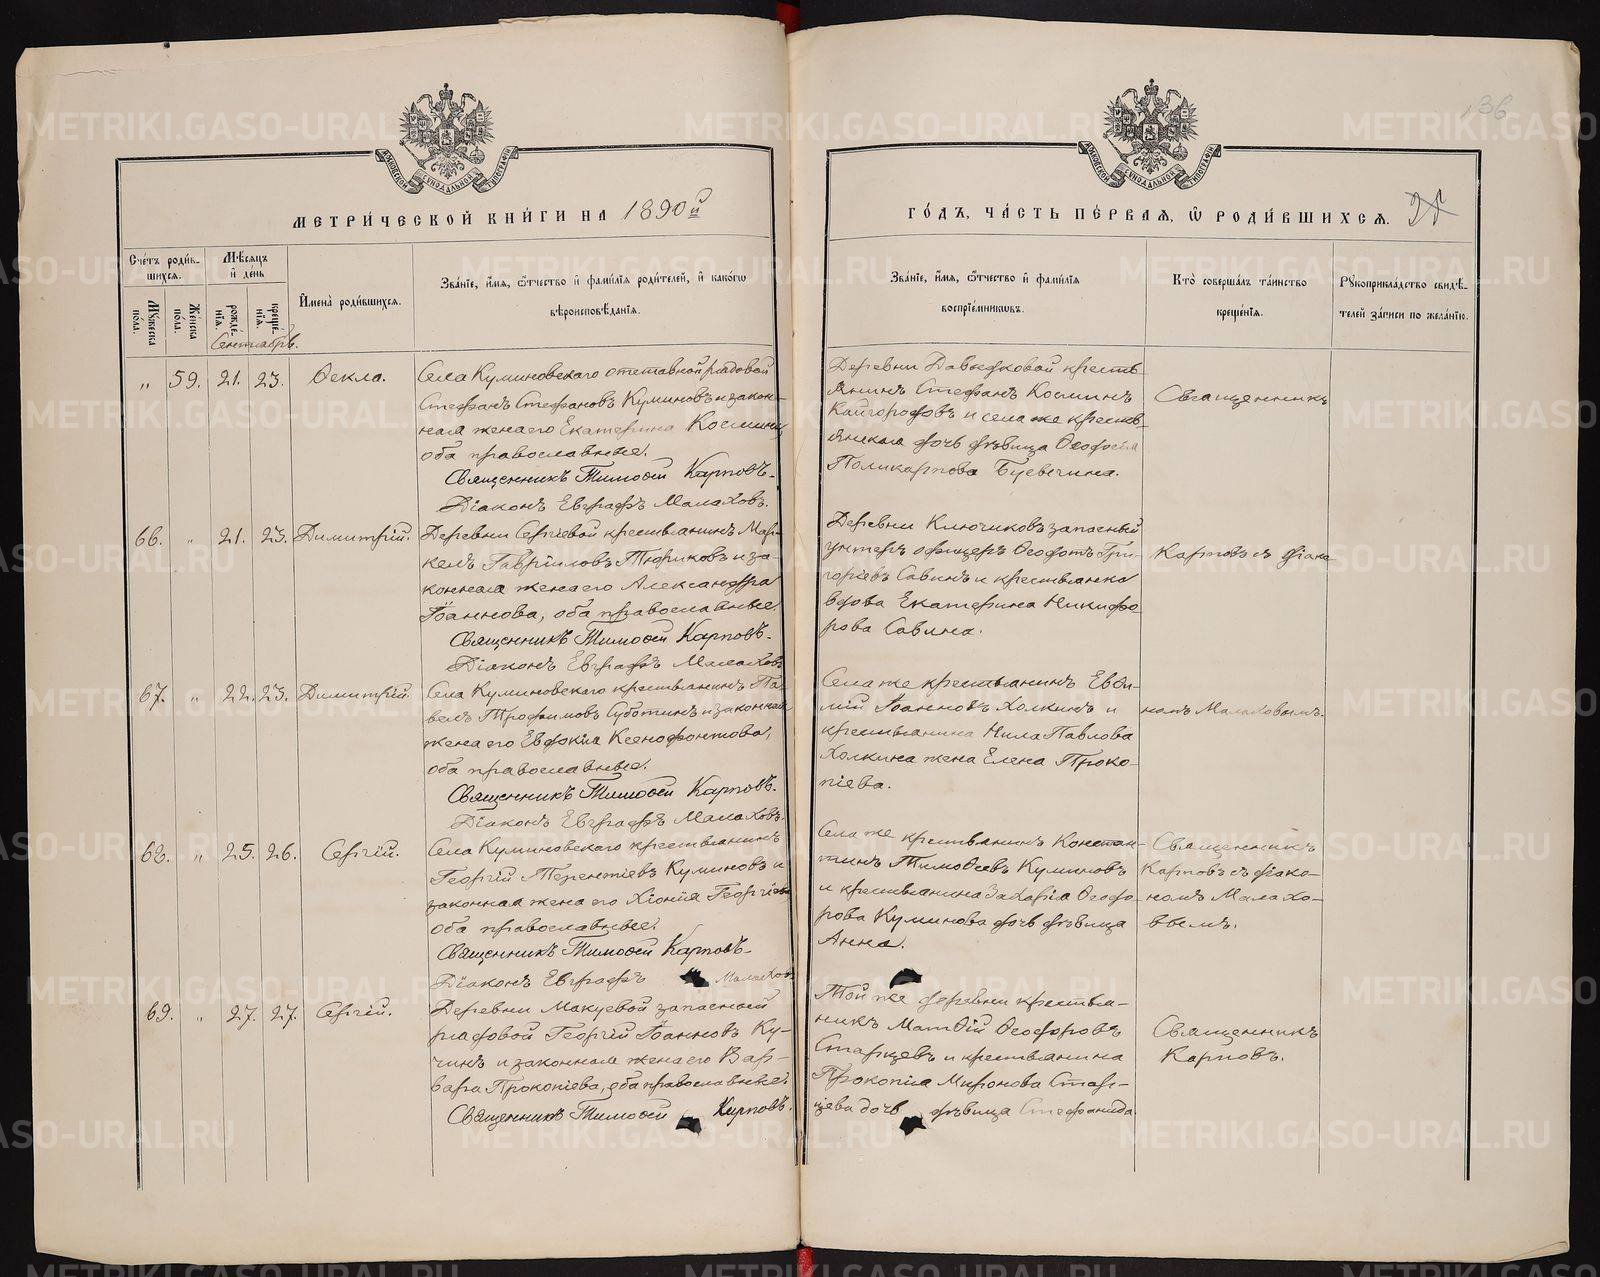 136
МОСКОВСКОЙ СѴНОДАЛЬНОЙ ТИПОГРАФІИ
МОСКОВСКОЙ СѴНОДАЛЬНОЙ ТИПОГРАФІИ
МЕТРИ́ЧЕСКОЙ КНИ́ГИ НА 1890й
ГО́ДЪ, ЧА́СТЬ ПЕ́РВАЯ, Ѡ РОДИ́ВШИХСЯ.
Сче́тъ роди́вшихся.
Мѣ́сяцъ и́ де́нь
И҆мена̀ роди́вшихся.
Зва́нїе, и҆́мѧ, ѻ҆́тчество и҆ фамѝлїѧ роди́телей, и҆ како́гѡ вѣроисповѣ́данїѧ.
Зва́нїе, и҆́мѧ, ѻ҆́тчество и҆ фамѝлїѧ воспрїе́мникѡвъ.
Кто̀ соверша́лъ та́инство креще́нїѧ.
Рꙋкоприкла́дство свидѣ́телей за́писи по жела́нїю.
Мꙋ́жеска по́ла.
Же́нска по́ла.
рожде́нїѧ.
креще́нїѧ.
Сентябрь.
„ 59. 21. 23. Ѳекла.
Села Куминовскаго отставной рядовой
Стефанъ Стефановъ Куминовъ и закон-
ная жена его Екатерина Космина,
оба православные.
Священникъ Тимоѳей Карповъ.
Діаконъ Евграфъ Малаховъ.
Деревни Давыдковой кресть-
янинъ Стефанъ Косминъ
Кайгородовъ и села же кресть-
янская дочь дѣвица Ѳеодосія
Поликарпова
Священникъ
66. „ 21. 23. Димитрій.
Деревни Сергіевой крестьянинъ Мар-
келъ Гавріиловъ Тюриковъ и за-
конная жена его Александра
Іоаннова, оба православные.
Священникъ Тимоѳей Карповъ.
Діаконъ Евграфъ Малаховъ
Деревни Ключиковъ запасный
унтеръ офицеръ Ѳеодотъ Гри-
горіевъ Савинъ и крестьянка
вдова Екатерина Никифо-
рова Савина.
Карповъ съ діако-
67. „ 22. 23. Димитрій.
Села Куминовскаго крестьянинъ Па-
велъ Трофимовъ Суботинъ и законная
жена его Евдокія Ксенофонтова,
оба православные.
Священникъ Тимоѳей Карповъ.
Діаконъ Евграфъ Малаховъ.
Села же крестьянинъ Евѳи-
мій Іоанновъ Холкинъ и
крестьянина Нила Павлова
Холкина жена Елена Проко-
піева.
номъ Малаховымъ.
68. „ 25. 26. Сергій.
Села Куминовскаго крестьянинъ
Георгій Терентіевъ Куминовъ и
законная жена его Хіонія Георгіева
оба православные.
Священникъ Тимоѳей Карповъ.
Діаконъ Евграфъ Малаховъ
Села же крестьянинъ Констан-
тинъ Тимоѳеевъ Куминовъ
и крестьянина Захарія Ѳеодо-
рова Куминова дочь дѣвица
Анна.
Священникъ
Карповъ съ діако-
номъ Малахо-
вымъ.
69. „ 27. 27. Сергій.
Деревни Макуевой запасный
рядовой Георгій Іоанновъ Ку-
чинъ и законная жена его Вар-
вара Прокопіева, оба православные.
Священникъ Тимоѳей Карповъ.
Той же деревни крестья-
нинъ Матѳій Ѳеодоровъ
Старцевъ и крестьянина
Прокопія Миронова Стар-
цева дочь дѣвица Стефанида.
Священникъ
Карповъ.
METRIKI.GASO-URAL.RU